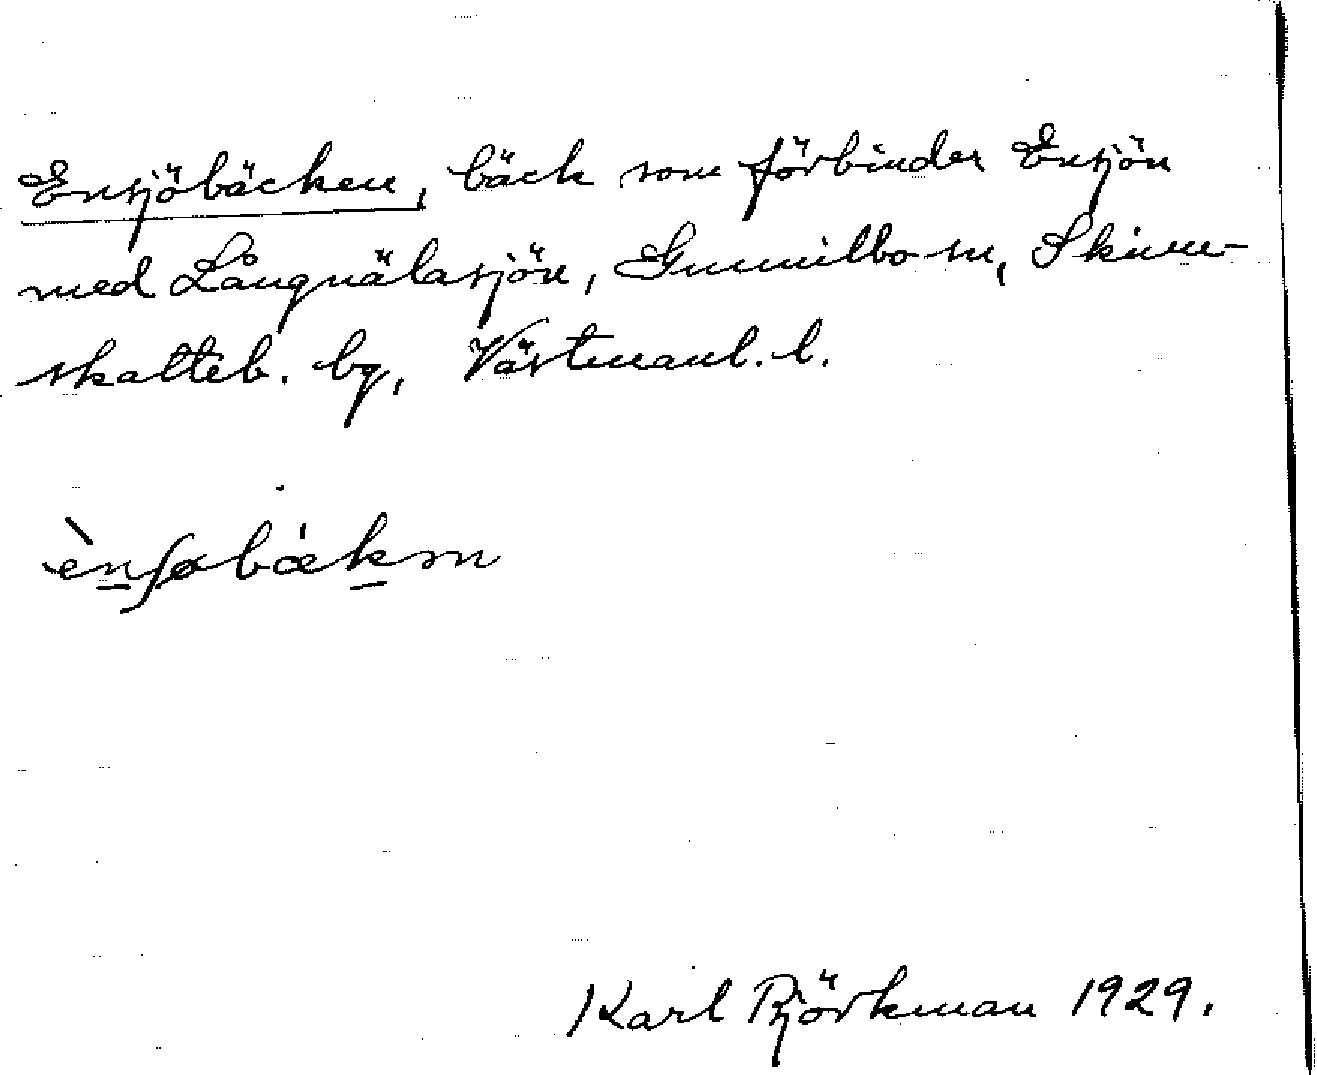 Ensjöbäcken, bäck som förbinder Ensjön
med Långnälasjön, Gunnilbo sn, Skinn-
skatteb. bg, Västmanl. l.
ènʃøbækən
Karl Björkman 1929.